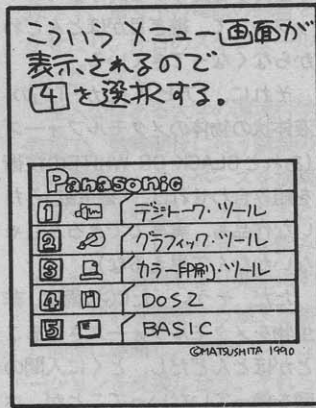 こういうメニュー画面が
表示されるので
4を選択する。
Panasonic
1 デジトーク・ツール
2 グラフィック・ツール
3 カラー印刷・ツール
4 DOS2
5 BASIC
©MATSUSHITA 1990